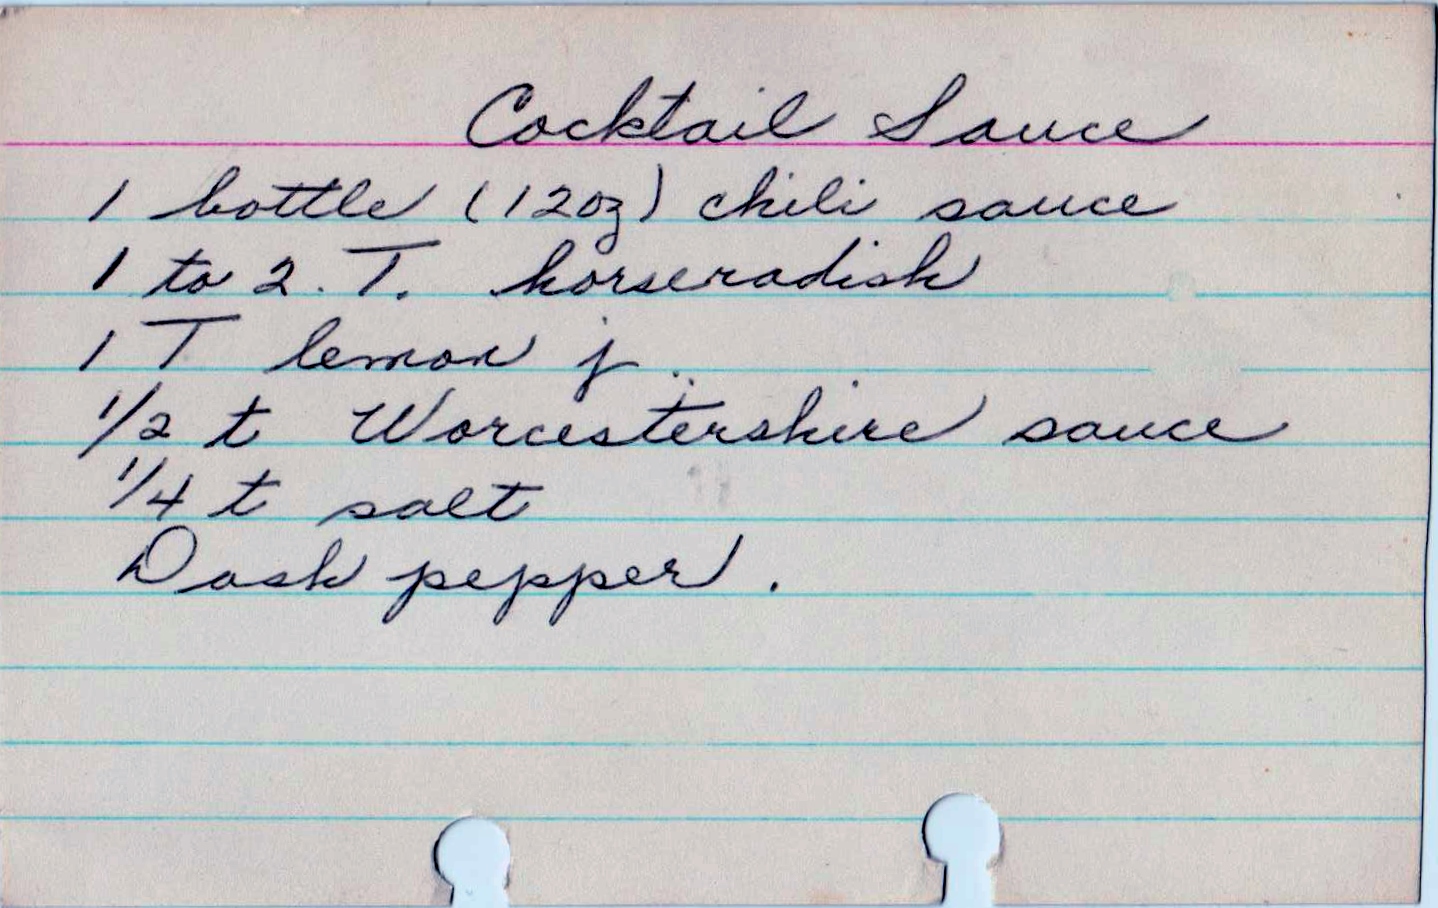 Cocktail Sauce
1 bottle (12oz) chili sauce
1 to 2. T. horseradish
1 T lemon j.
1/2 t Worcestershire sauce
1/4 t salt
Dash pepper.